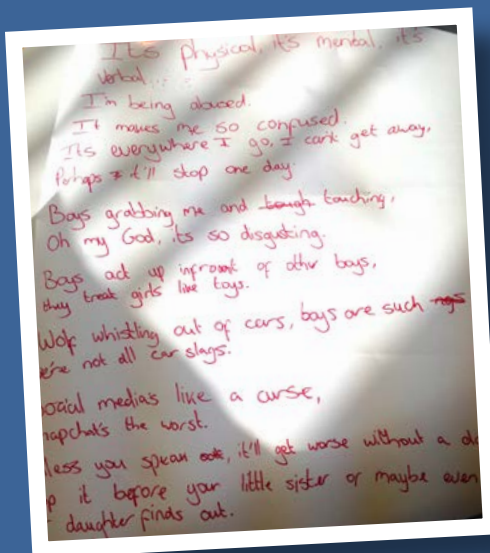 Its physical, it's mental, it's
verbal...
I'm being abused.
It makes me so confused.
Its everywhere I go, I can't get away,
Perhaps it'll stop one day.
Boys grabbing me and touching,
Oh my God, its so disgusting.
Boys act up infront of other boys,
they treat girls like toys.
Wolf whistling out of cars, boys are such
we're not all car slags.
social media's like a curse,
napchat's the worst.
less you speak, it'll get worse without a do
p it before your little sister or maybe even
daughter finds out.